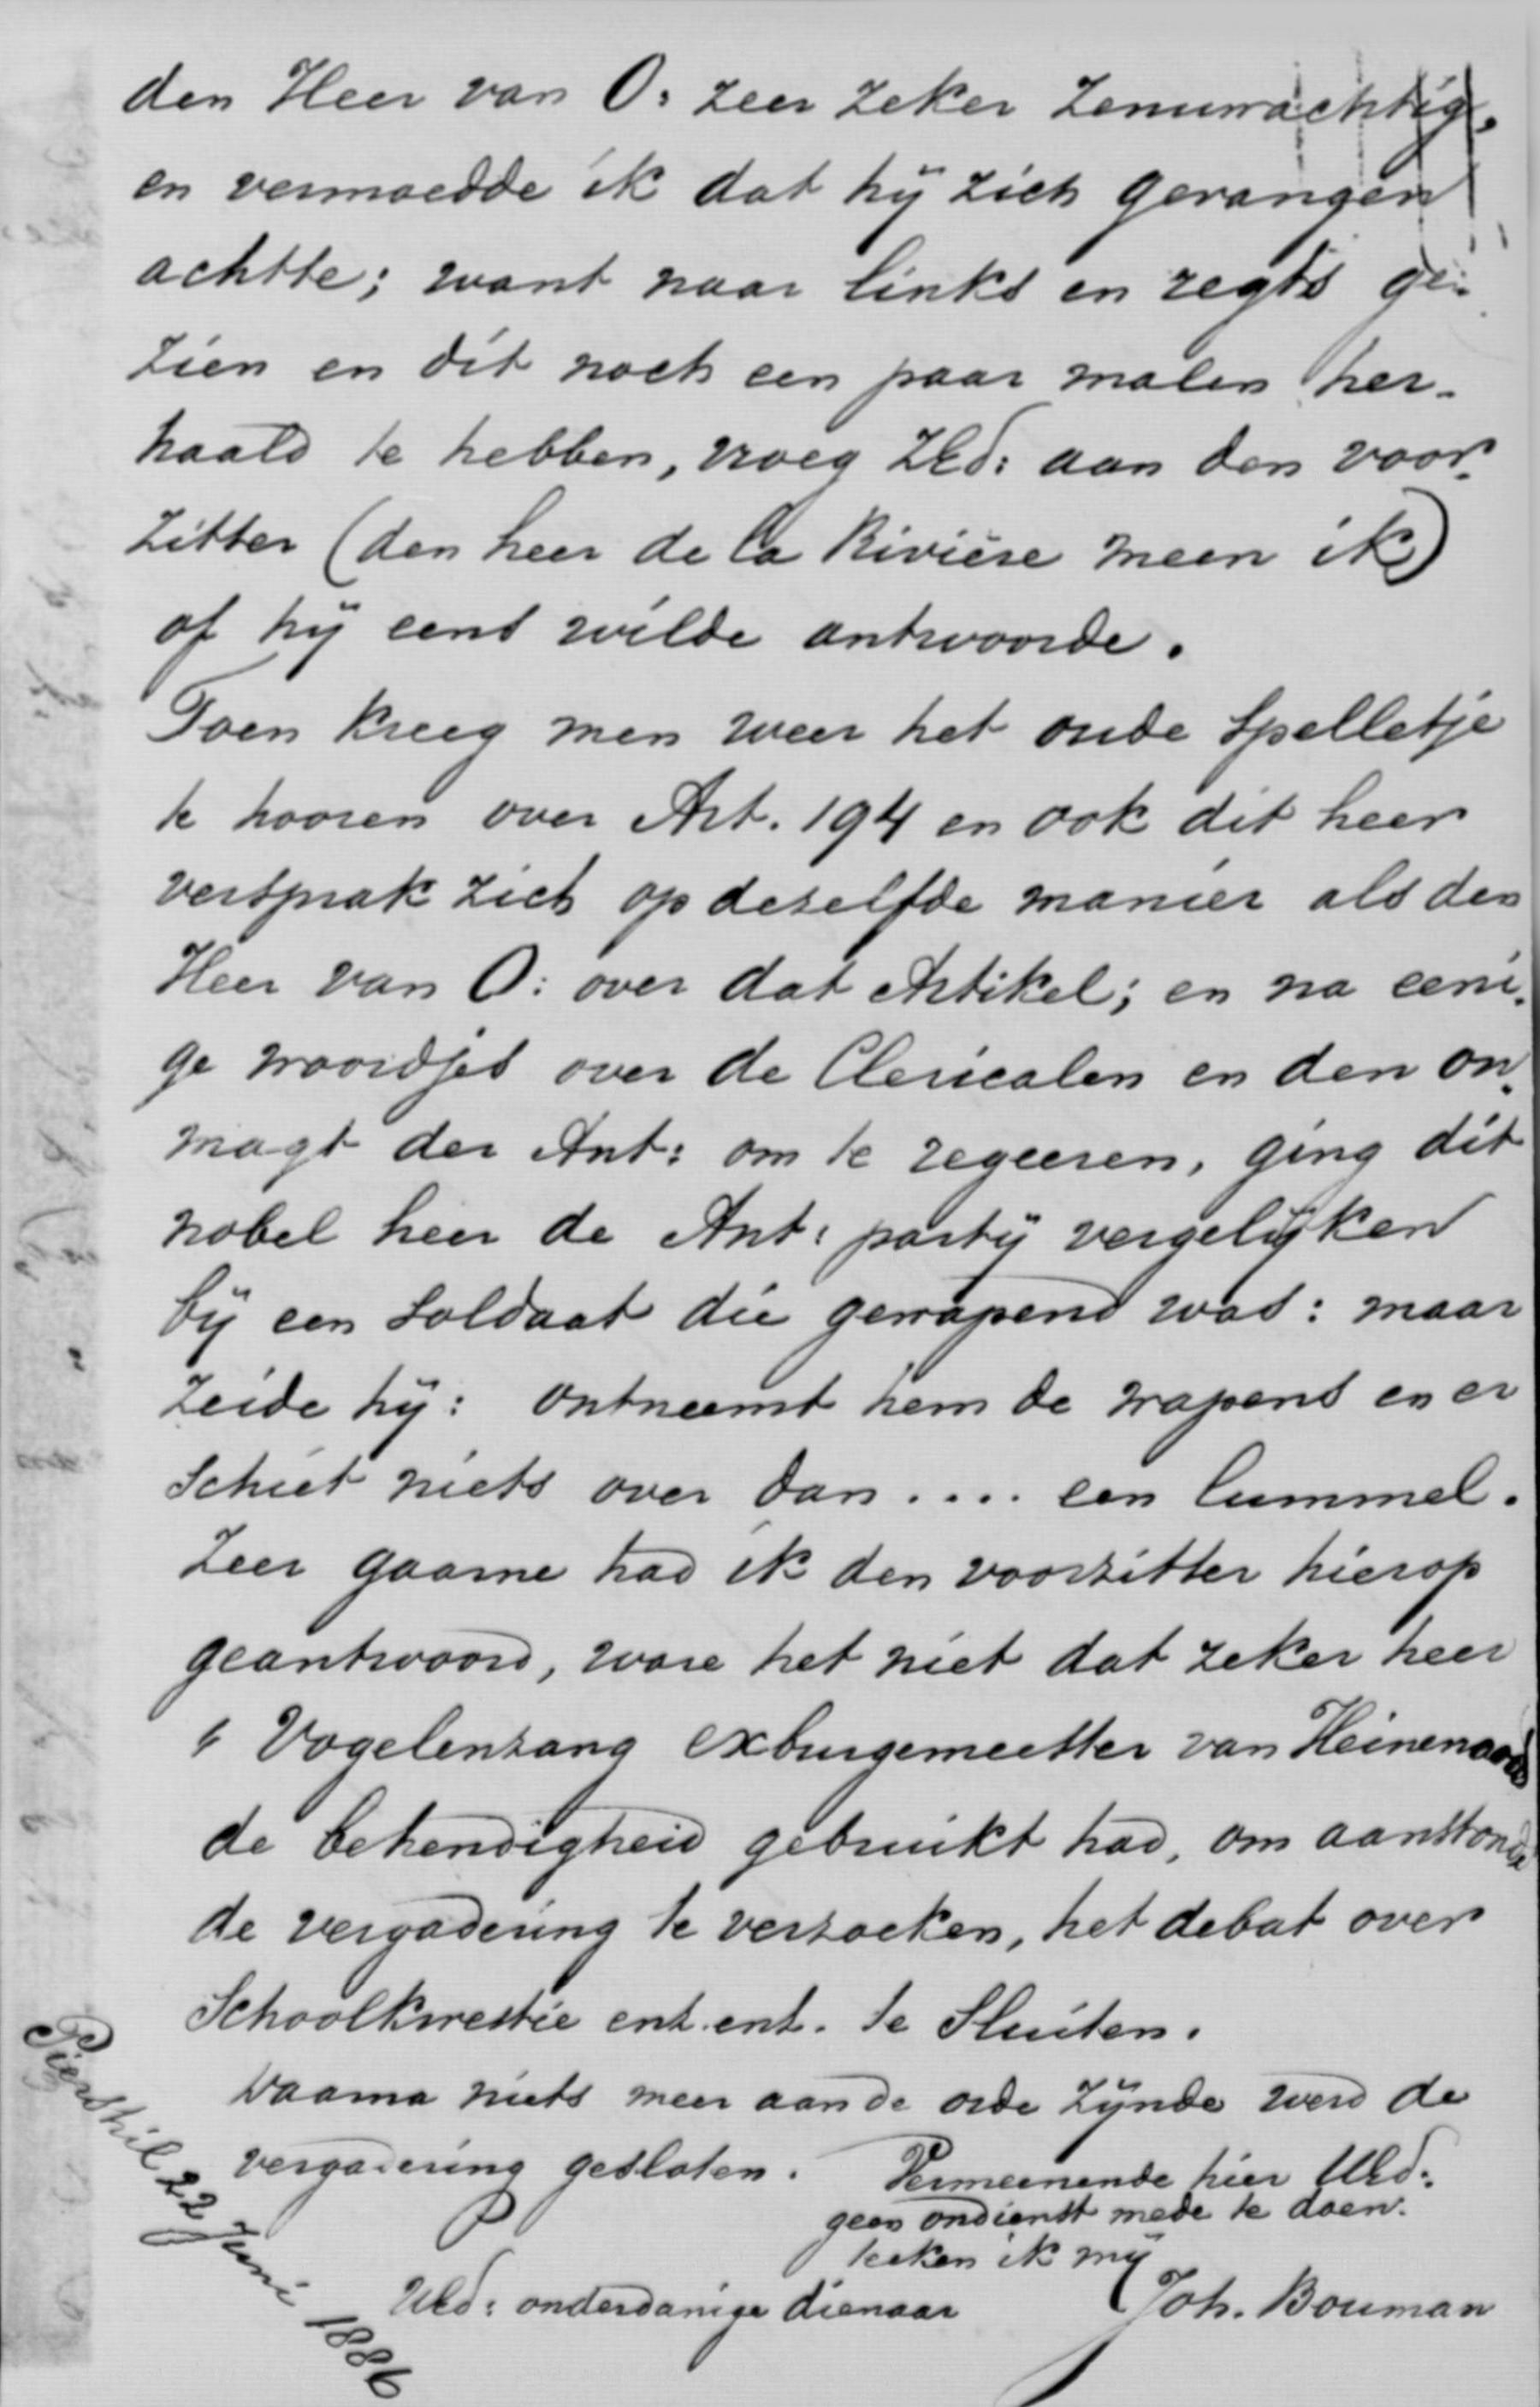 den Heer van O: zeer zeker zenuwachtig,
en vermoedde ik dat hij zich gevangen
achtte; want naar links en regts ge-
zien en dit noch een paar malen her-
haald te hebben, vroeg ZEd: aan den voor-
zitter (den heer de la Rivière meen ik)
of hij eens wilde antwoorde.
Toen kreeg men weer het oude spelletje
te hooren over Art. 194 en ook dit heer
versprak zich op dezelfde manier als den
Heer van O: over dat Artikel; en na eeni-
ge woordjes over de Clericalen en den on-
magt der Ant: om te regeeren, ging dit
nobel heer de Ant: partij vergelijken
bij een soldaat die gewapend was: maar
zeide hij: ontneemt hem de wapens en er
schiet niets over dan .... een lummel.
Zeer gaarne had ik den voorzitter hierop
geantwoord, ware het niet dat zeker heer
Vogelenzang exburgemeester van Heinenoord
de behendigheid gebruikt had, om aanstonds
de vergadering te verzoeken, het debat over
Schoolkwestie enz. enz. te Sluiten.
Waarna niets meer aan de orde zijnde werd de
vergadering gesloten.
Vermeenende hier UEd:
geen ondienst mede te doen.
teeken ik mij
UEd: onderdanige dienaar
Joh. Bouman
Piershil 22 Juni 1886